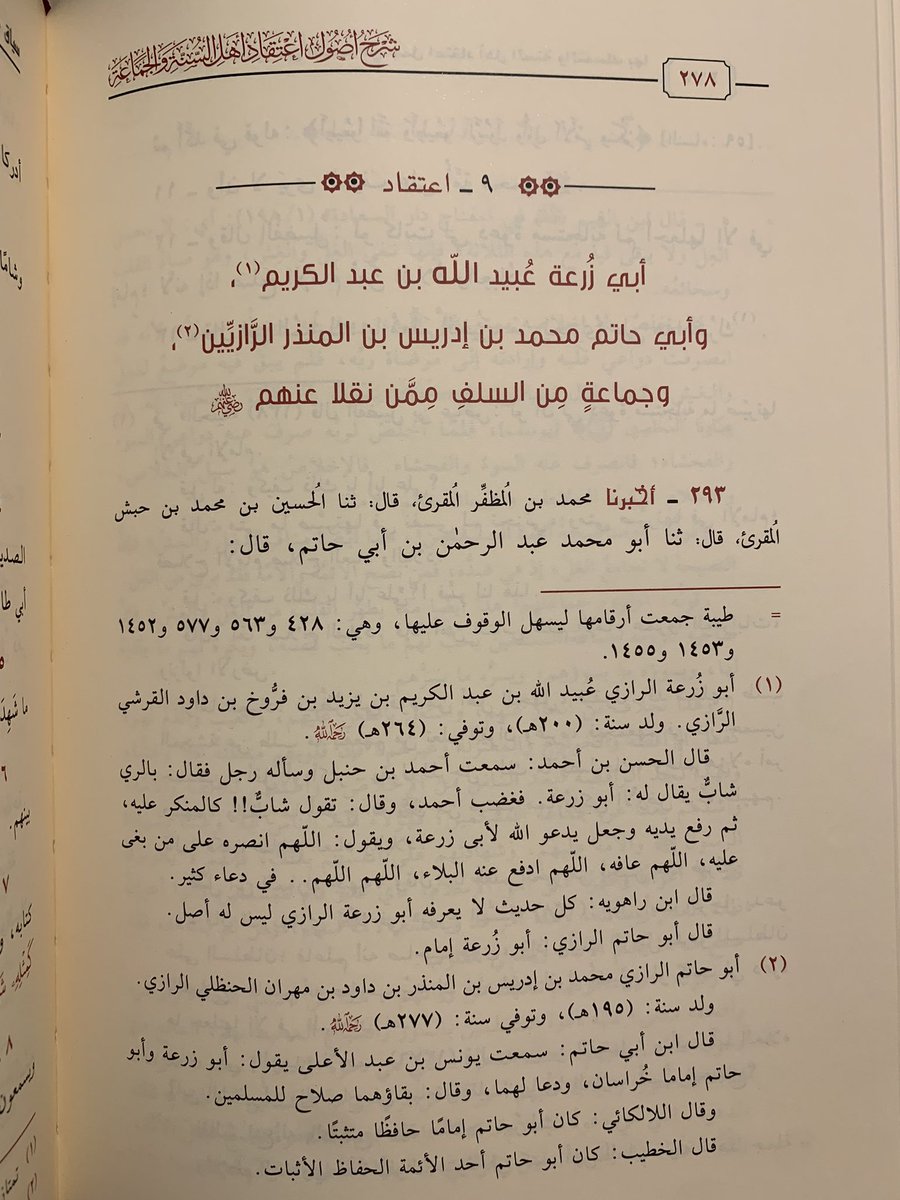 شرح أصول اعتقاد أهل السنة والجماعة
٢٧٨
٩ ـ اعتقاد
أبي زُرعة عُبيد الله بن عبد الكريم(١)،
وأبي حاتم محمد بن إدريس بن المنذر الرَّازيِّين(٢)،
وجماعةٍ مِن السلفِ مِمَّن نقلا عنهم رضي الله عنهم
٢٩٣ ـ أخبرنا محمد بن المُظفِّر المُقرئ، قال: ثنا الحُسين بن محمد بن حبش
المُقرئ، قال: ثنا أبو محمد عبد الرحمٰن بن أبي حاتم، قال:
= طيبة جمعت أرقامها ليسهل الوقوف عليها، وهي: ٤٢٨ و٥٦٣ و٥٧٧ و١٤٥٢
و١٤٥٣ و١٤٥٥.
(١) أبو زُرعة الرازي عُبيد الله بن عبد الكريم بن يزيد بن فرُّوخ بن داود القرشي
الرَّازي. ولد سنة: (٢٠٠هـ)، وتوفي: (٢٦٤هـ) رحمه الله.
قال الحسن بن أحمد: سمعت أحمد بن حنبل وسأله رجل فقال: بالري
شابٌّ يقال له: أبو زرعة. فغضب أحمد، وقال: تقول شابٌّ!! كالمنكر عليه،
ثم رفع يديه وجعل يدعو الله لأبى زرعة، ويقول: اللّهم انصره على من بغى
عليه، اللّهم عافه، اللّهم ادفع عنه البلاء، اللّهم اللّهم.. في دعاء كثير.
قال ابن راهويه: كل حديث لا يعرفه أبو زرعة الرازي ليس له أصل.
قال أبو حاتم الرازي: أبو زُرعة إمام.
(٢) أبو حاتم الرازي محمد بن إدريس بن المنذر بن داود بن مهران الحنظلي الرازي.
ولد سنة: (١٩٥هـ)، وتوفي سنة: (٢٧٧هـ) رحمه الله.
قال ابن أبي حاتم: سمعت يونس بن عبد الأعلى يقول: أبو زرعة وأبو
حاتم إماما خُراسان، ودعا لهما، وقال: بقاؤهما صلاح للمسلمين.
وقال اللالكائي: كان أبو حاتم إمامًا حافظًا متثبتًا.
قال الخطيب: كان أبو حاتم أحد الأئمة الحفاظ الأثبات.